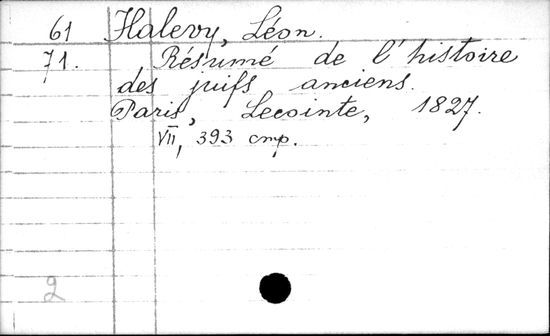 61 Halevy, Léon.
71. Résumé de l'histoire
des juifs anciens.
Paris, Lecointe, 1827.
VII, 393 стр.
2